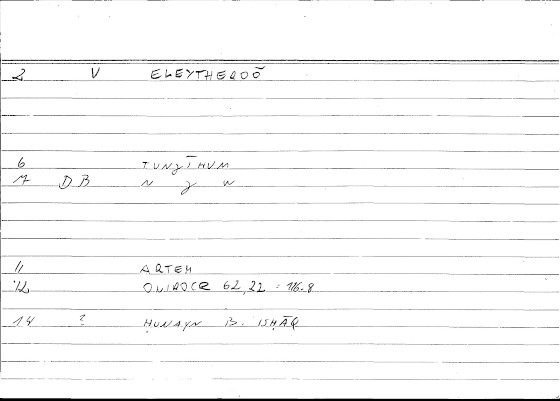 2 V ELEYTHEROŌ
6 TUNZĪHUM
7 DB N Z W
11 ARTEM
12 62,22 = 116.8
14 ? ḤUNAYN B. ISḤĀQ